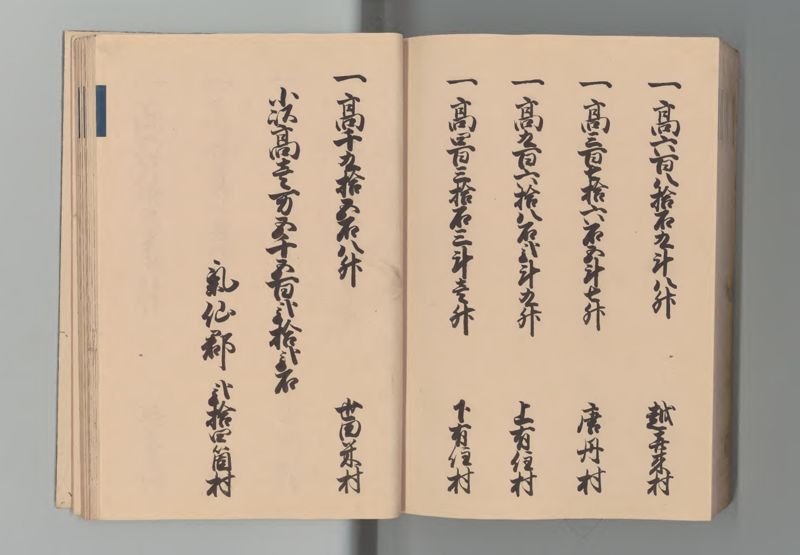 一高六百八拾石九斗八升 越喜来村
一高三百七拾六石五斗七升 唐丹村
一高九百六拾八石弐斗九升 上有住村
一高四百三拾石三斗壱升 下有住村
一高千九拾五石八升 世田米村
小以高壱万五千五百弐拾弐石
気仙郡 弐拾四箇村